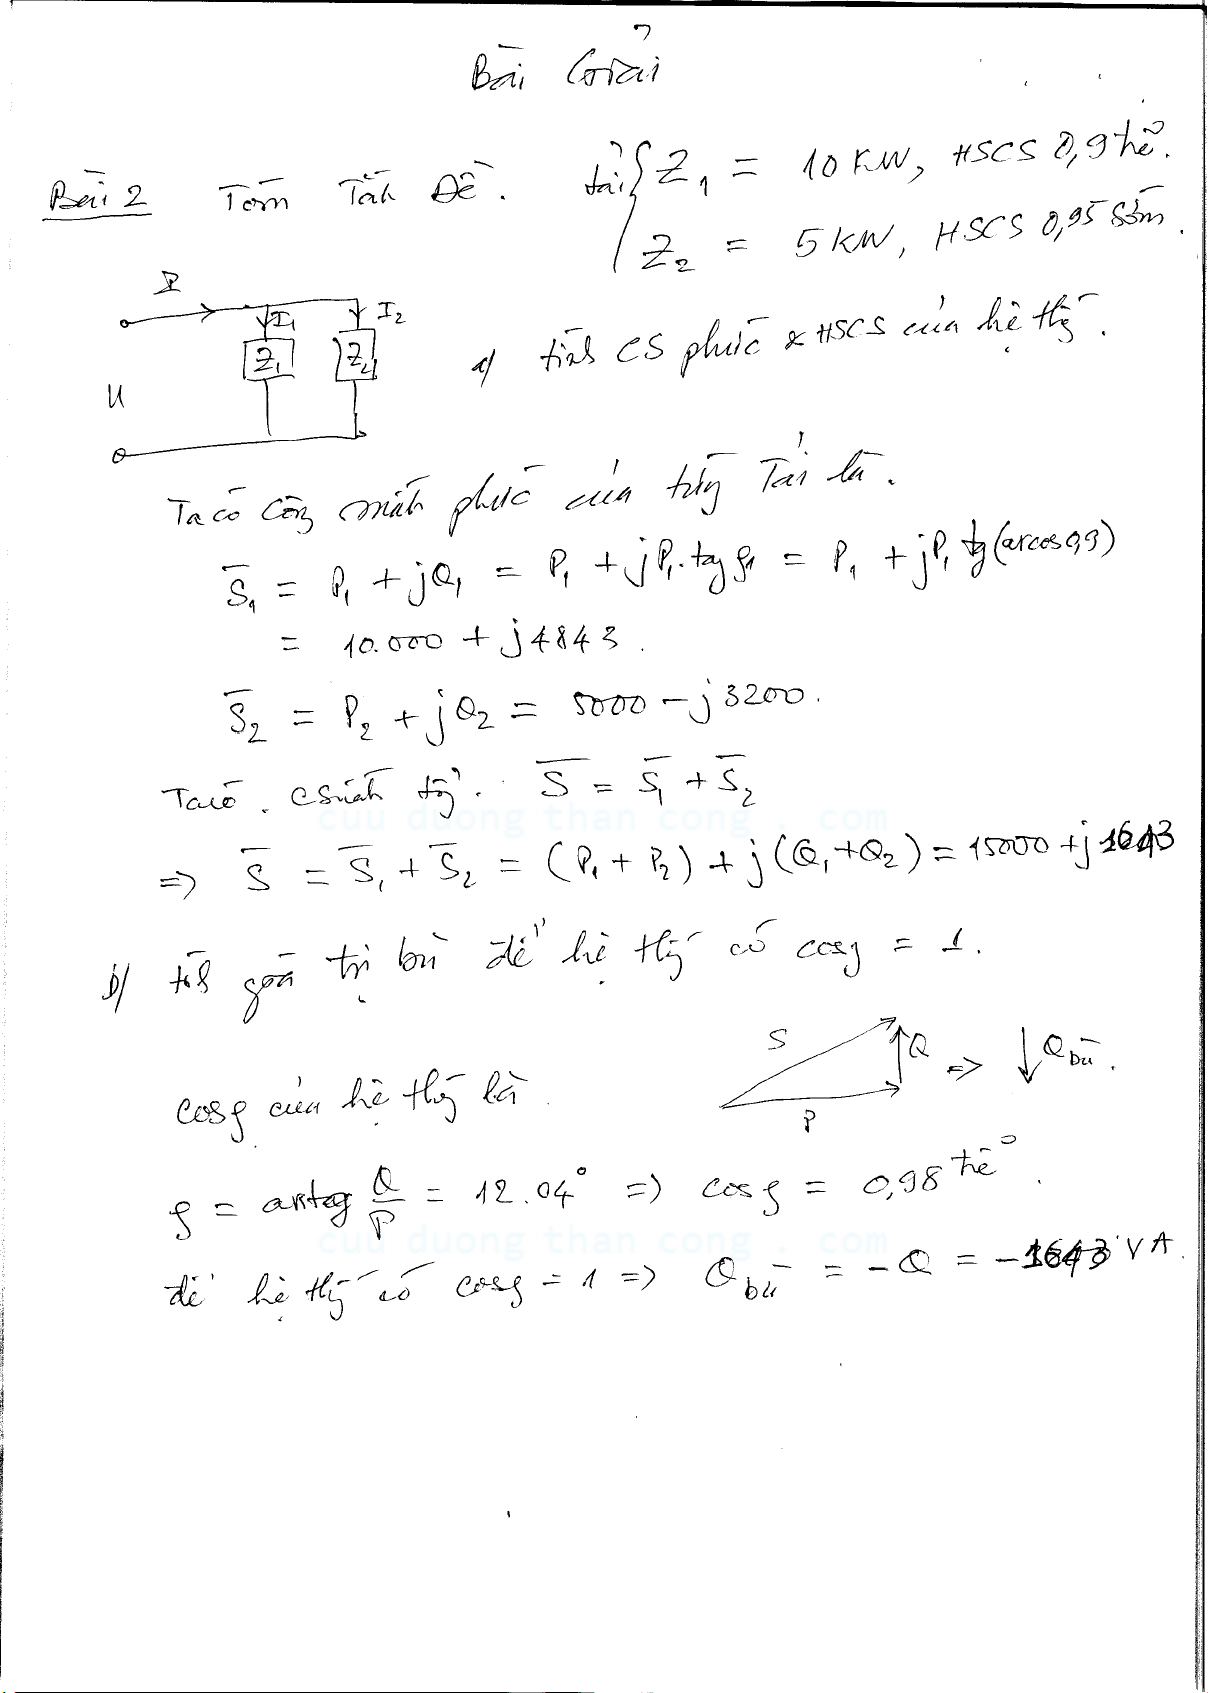 Bài Giải
Bài 2 Tóm Tắt Đề. tải { Z1 = 10 KW, HSCS 0,9 trễ.
Z2 = 5 KW, HSCS 0,95 Sớm.
I
I1 I2
Z1 Z2
U
a/ tính CS phức & HSCS của hệ thg.
Ta có Công suất phức của từng Tải là.
S̅1 = P1 + jQ1 = P1 + jP1.tgφ1 = P1 + jP1 tg(arcos 0,9)
= 10.000 + j4843.
S̅2 = P2 + jQ2 = 5000 - j3200.
Ta có. CSuất tổng. S̅ = S̅1 + S̅2
cuu duong than cong . com
=> S̅ = S̅1 + S̅2 = (P1 + P2) + j(Q1+Q2) = 15000 + j1643
b/ tính giá trị bù để hệ thg có cosφ = 1.
S Q => ↓ Qbù.
P
cosφ của hệ thg là
φ = arctg Q/P = 12.04° => cosφ = 0,98 trễ.
cuu duong than cong . com
để hệ thg có cosφ = 1 => Qbù = -Q = -1643 VA.